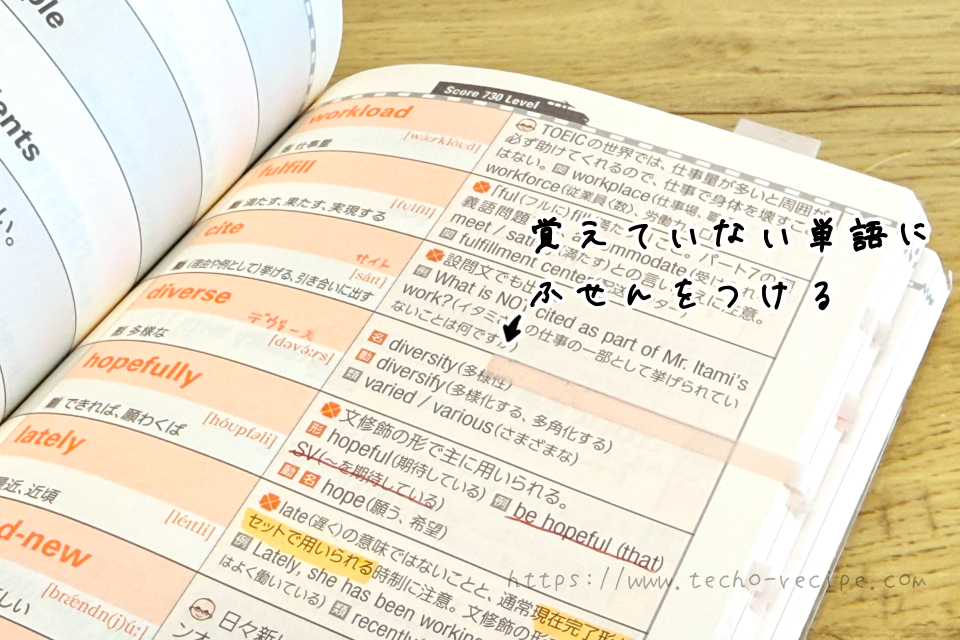 ple
ents
い。
Score 730 Level
workload
[wə́ːrklòud]
仕事量
TOEICの世界では、仕事量が多いと周囲が
必ず助けてくれるので、仕事で身体を壊すこ
はない。 例 workplace(仕事場、職
workforce(従業員〈数〉、労働力
fulfill
[fulfíl]
満たす、果たす、実現する
「ful(フルに)fill(満た
義語問題
パート7の
meet / sat
mmodate
満たす)との言い
に注意。
fulfillment center
cite
サイト
[sáit]
(理由や例として)挙げる、引き合いに出す
設問文でも出
例 What is NO
cited as part of Mr. Itami's
work?(イタミ
の仕事の一部として挙げられてい
ないことは何ですか)
diverse
デヴァース
[dəvə́ːrs]
形 多様な
名 diversity(多様性)
動 diversify(多様化する、多角化する)
類 varied / various(さまざまな)
hopefully
[hóupfəli]
できれば、願わくば
文修飾の形で主に用いられる。
形 hopeful(期待している) 例 be hopeful (that)
SV(〜を期待している)
動 名 hope(願う、希望)
lately
[léitli]
最近、近頃
late(遅く)の意味ではないことと、通常現在完了形と
セットで用いられる時制に注意。文修飾の形
例 Lately, she has been working
はよく働いている) 類 recently
d-new
[brǽndn(j)úː]
しい
日々新し
ンオ
覚えていない単語に
ふせんをつける
https://www.techo-recipe.com